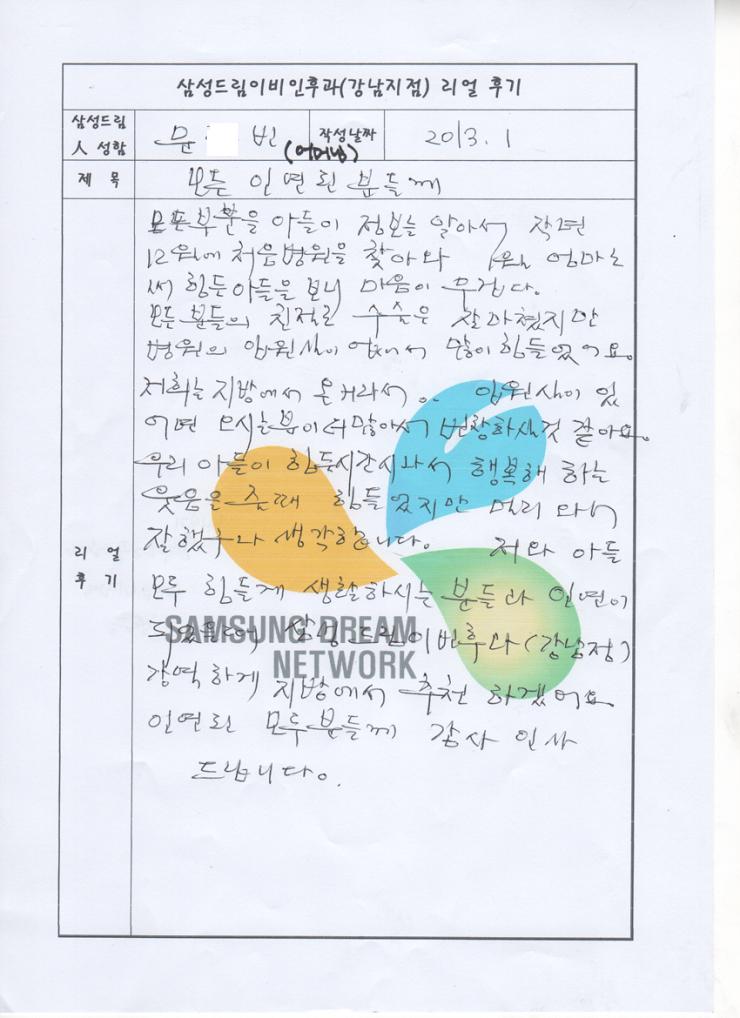 삼성드림이비인후과(강남지점) 리얼 후기
삼성드림
人 성함
문 빈
(어머님)
작성날짜
2013. 1
제 목
모든 인연된 분들께
리 얼
후 기
모든부분을 아들이 정보를 알아서 작년
12월에 처음병원을 찾아와 엄마로
써 힘든아들을 보니 마음이 무겁다.
모든 분들의 친절로 수술은 잘마쳤지만
병원의 입원실이 없어서 많이 힘들었어요.
저희는 지방에서 온거라서.. 입원실이 있
어면 오시는분이 더많아서 번창하실것 같아요.
우리 아들이 힘든시간지나서 행복해 하는
웃음을 줄때 힘들었지만 멀리 와서
잘했구나 생각합니다. 저와 아들
모두 힘들게 생활하시는 분들과 인연이
삼성드림이비인후과(강남점)
강역하게 지방에서 추천 하겠어요
인연된 모두분들께 감사 인사
드립니다.
SAMSUNG DREAM
NETWORK